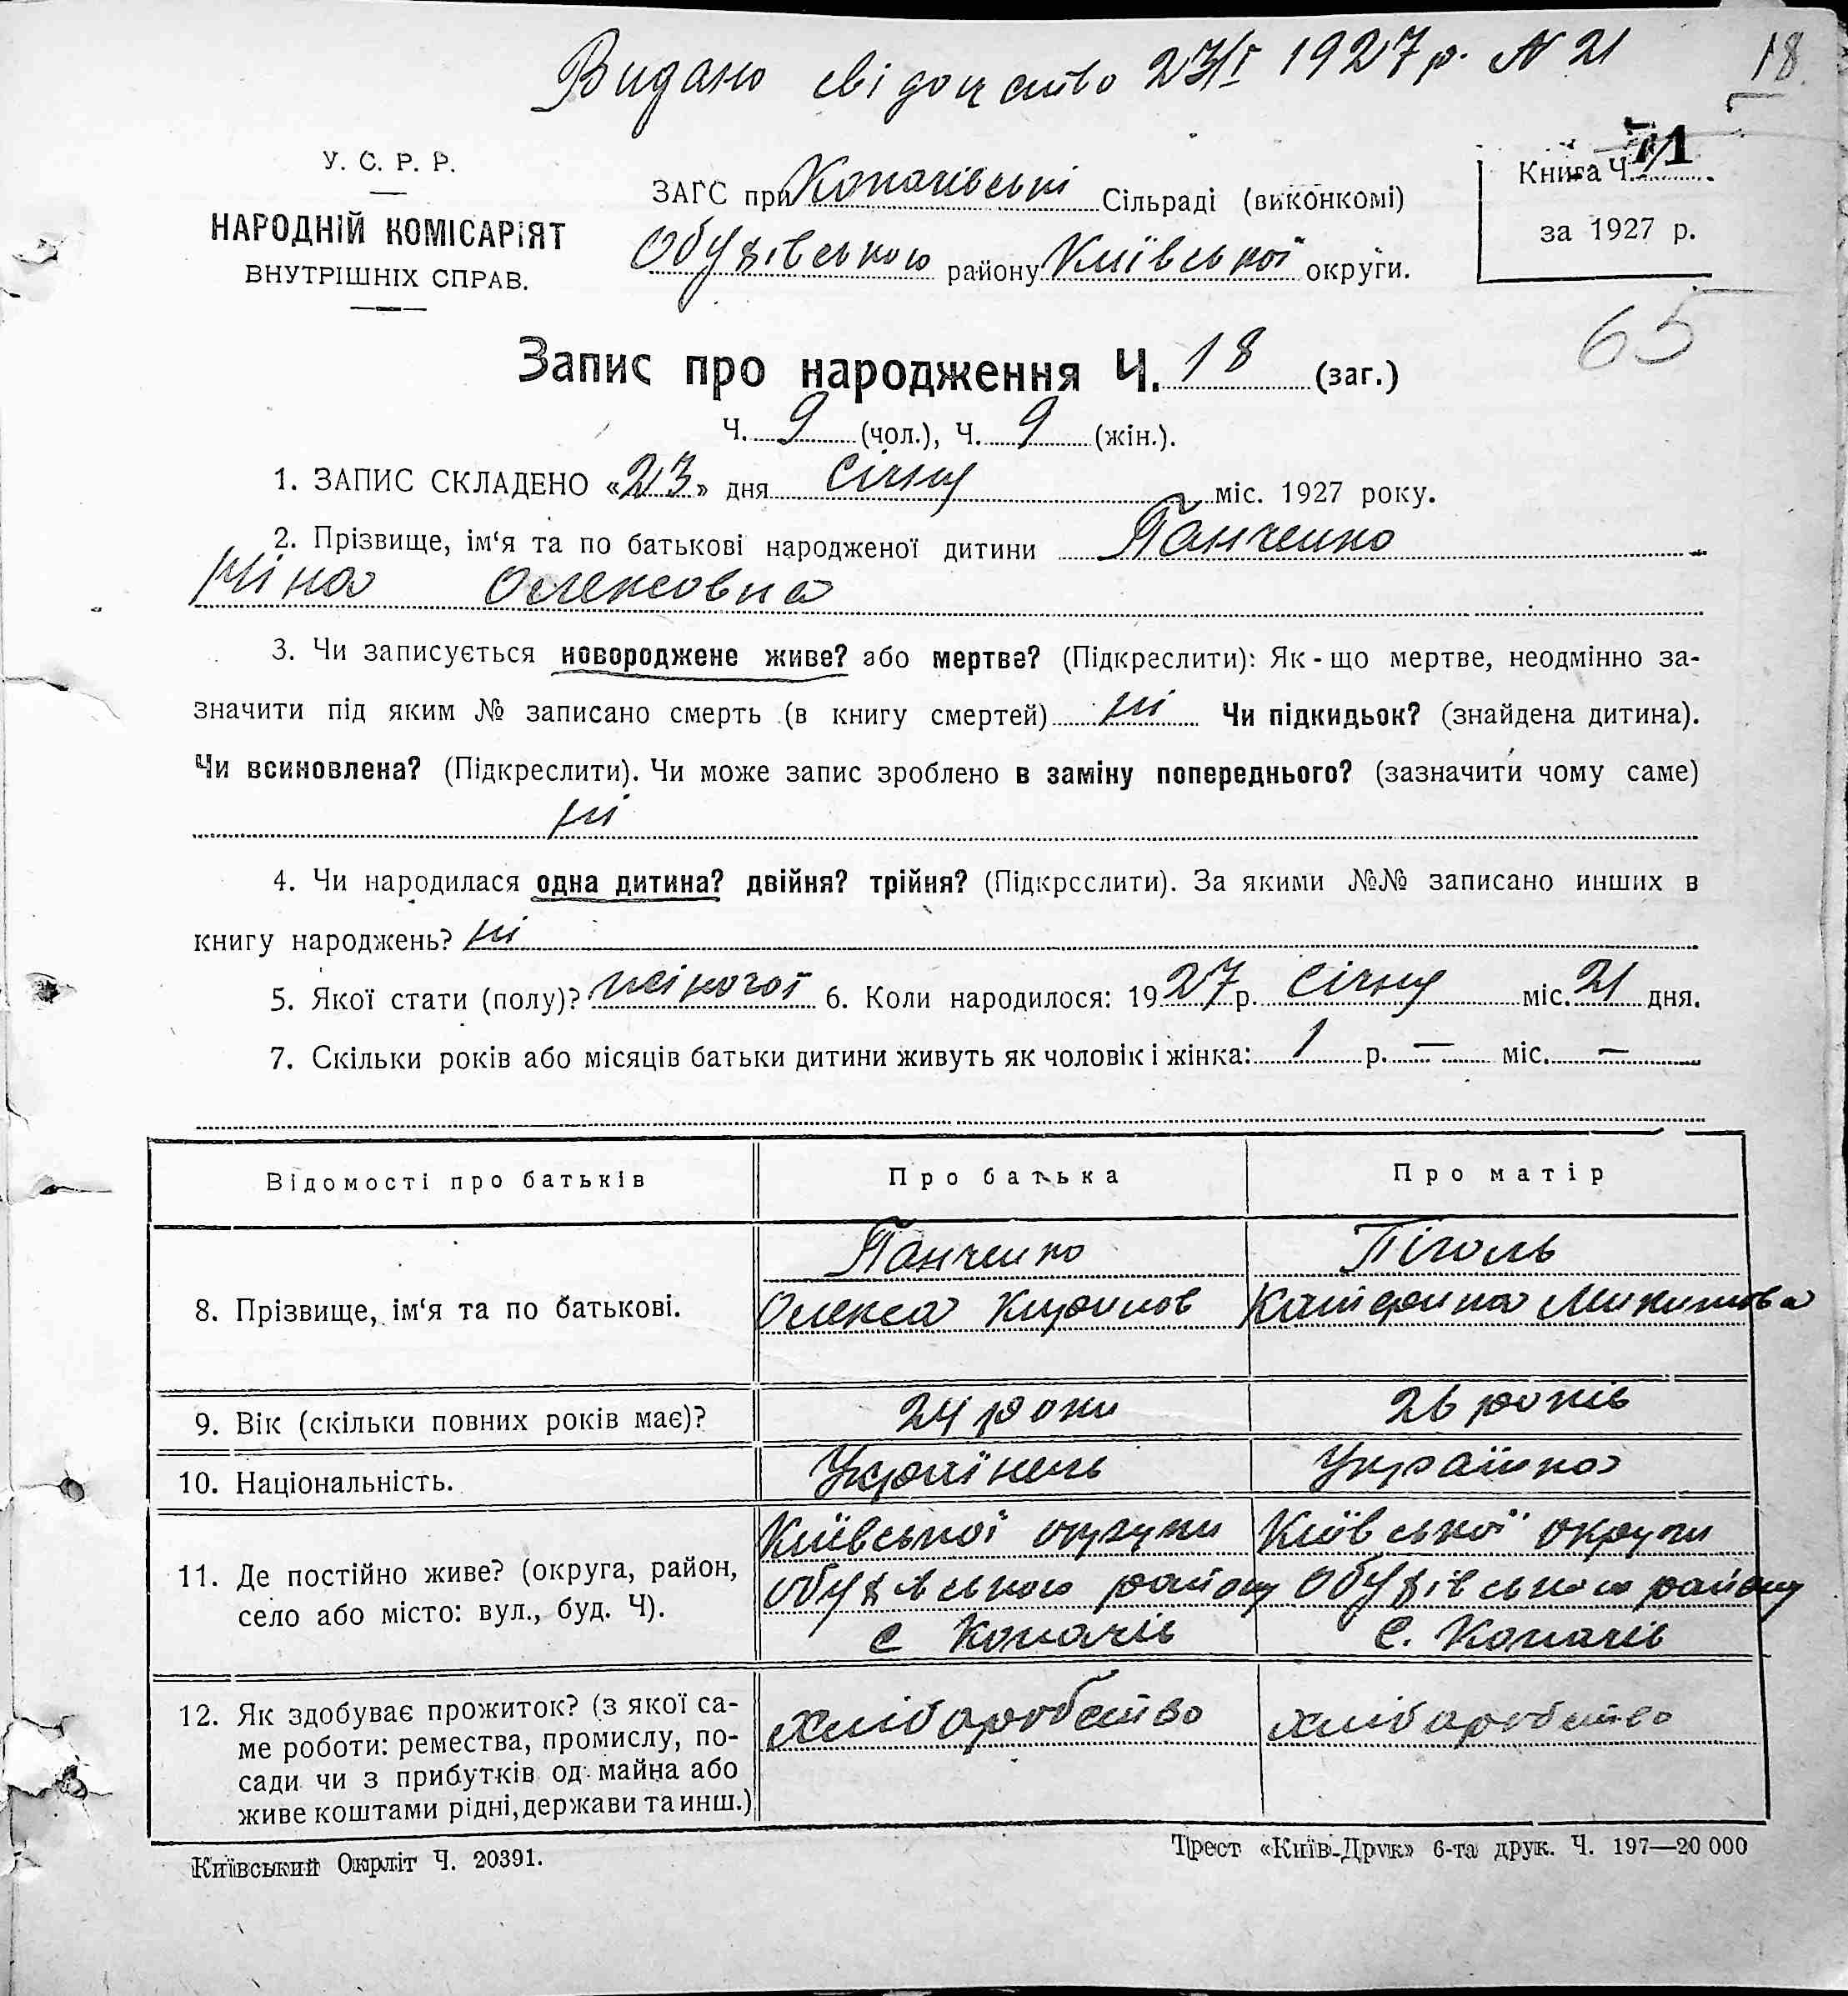 Видано свідоцтво 23/I 1927 р. N 21
18
У. С. Р. Р.
НАРОДНІЙ КОМІСАРІЯТ
ВНУТРІШНІХ СПРАВ.
ЗАГС при Копачівські Сільраді (виконкомі)
Обухівського району Київської округи.
Книга Ч.
за 1927 р.
65
Запис про народження Ч. 18 (заг.)
Ч. 9 (чол.), Ч. 9 (жін.).
1. ЗАПИС СКЛАДЕНО «23» дня січня міс. 1927 року.
2. Прізвище, ім‘я та по батькові народженої дитини Панченко
Ніна Олексовна
3. Чи записується новороджене живе? або мертве? (Підкреслити): Як-що мертве, неодмінно за-
значити під яким № записано смерть (в книгу смертей) ні Чи підкидьок? (знайдена дитина).
Чи всиновлена? (Підкреслити). Чи може запис зроблено в заміну попереднього? (зазначити чому саме)
ні
4. Чи народилася одна дитина? двійня? трійня? (Підкрсслити). За якими №№ записано инших в
книгу народжень? ні
5. Якої стати (полу)? жіночої 6. Коли народилося: 1927 р. січня міс. 21 дня.
7. Скільки років або місяців батьки дитини живуть як чоловік і жінка: 1 р. — міс. —
Відомості про батьків
Про батька
Про матір
8. Прізвище, ім‘я та по батькові.
Панченко
Олекса Кирилов
Піголь
Катерина Микитова
9. Вік (скільки повних років має)?
24 роки
26 років
10. Національність.
Українець
Українка
11. Де постійно живе? (округа, район,
село або місто: вул., буд. Ч).
Київської округи
Обухівського району
с Копачів
Київської округи
Обухівського району
с. Копачів
12. Як здобуває прожиток? (з якої са-
ме роботи: ремества, промислу, по-
сади чи з прибутків од майна або
живе коштами рідні, держави та инш.)
хліборобство
хліборобство
Київський Окрліт Ч. 20391.
Трест «Київ-Друк» 6-та друк. Ч. 197—20 000